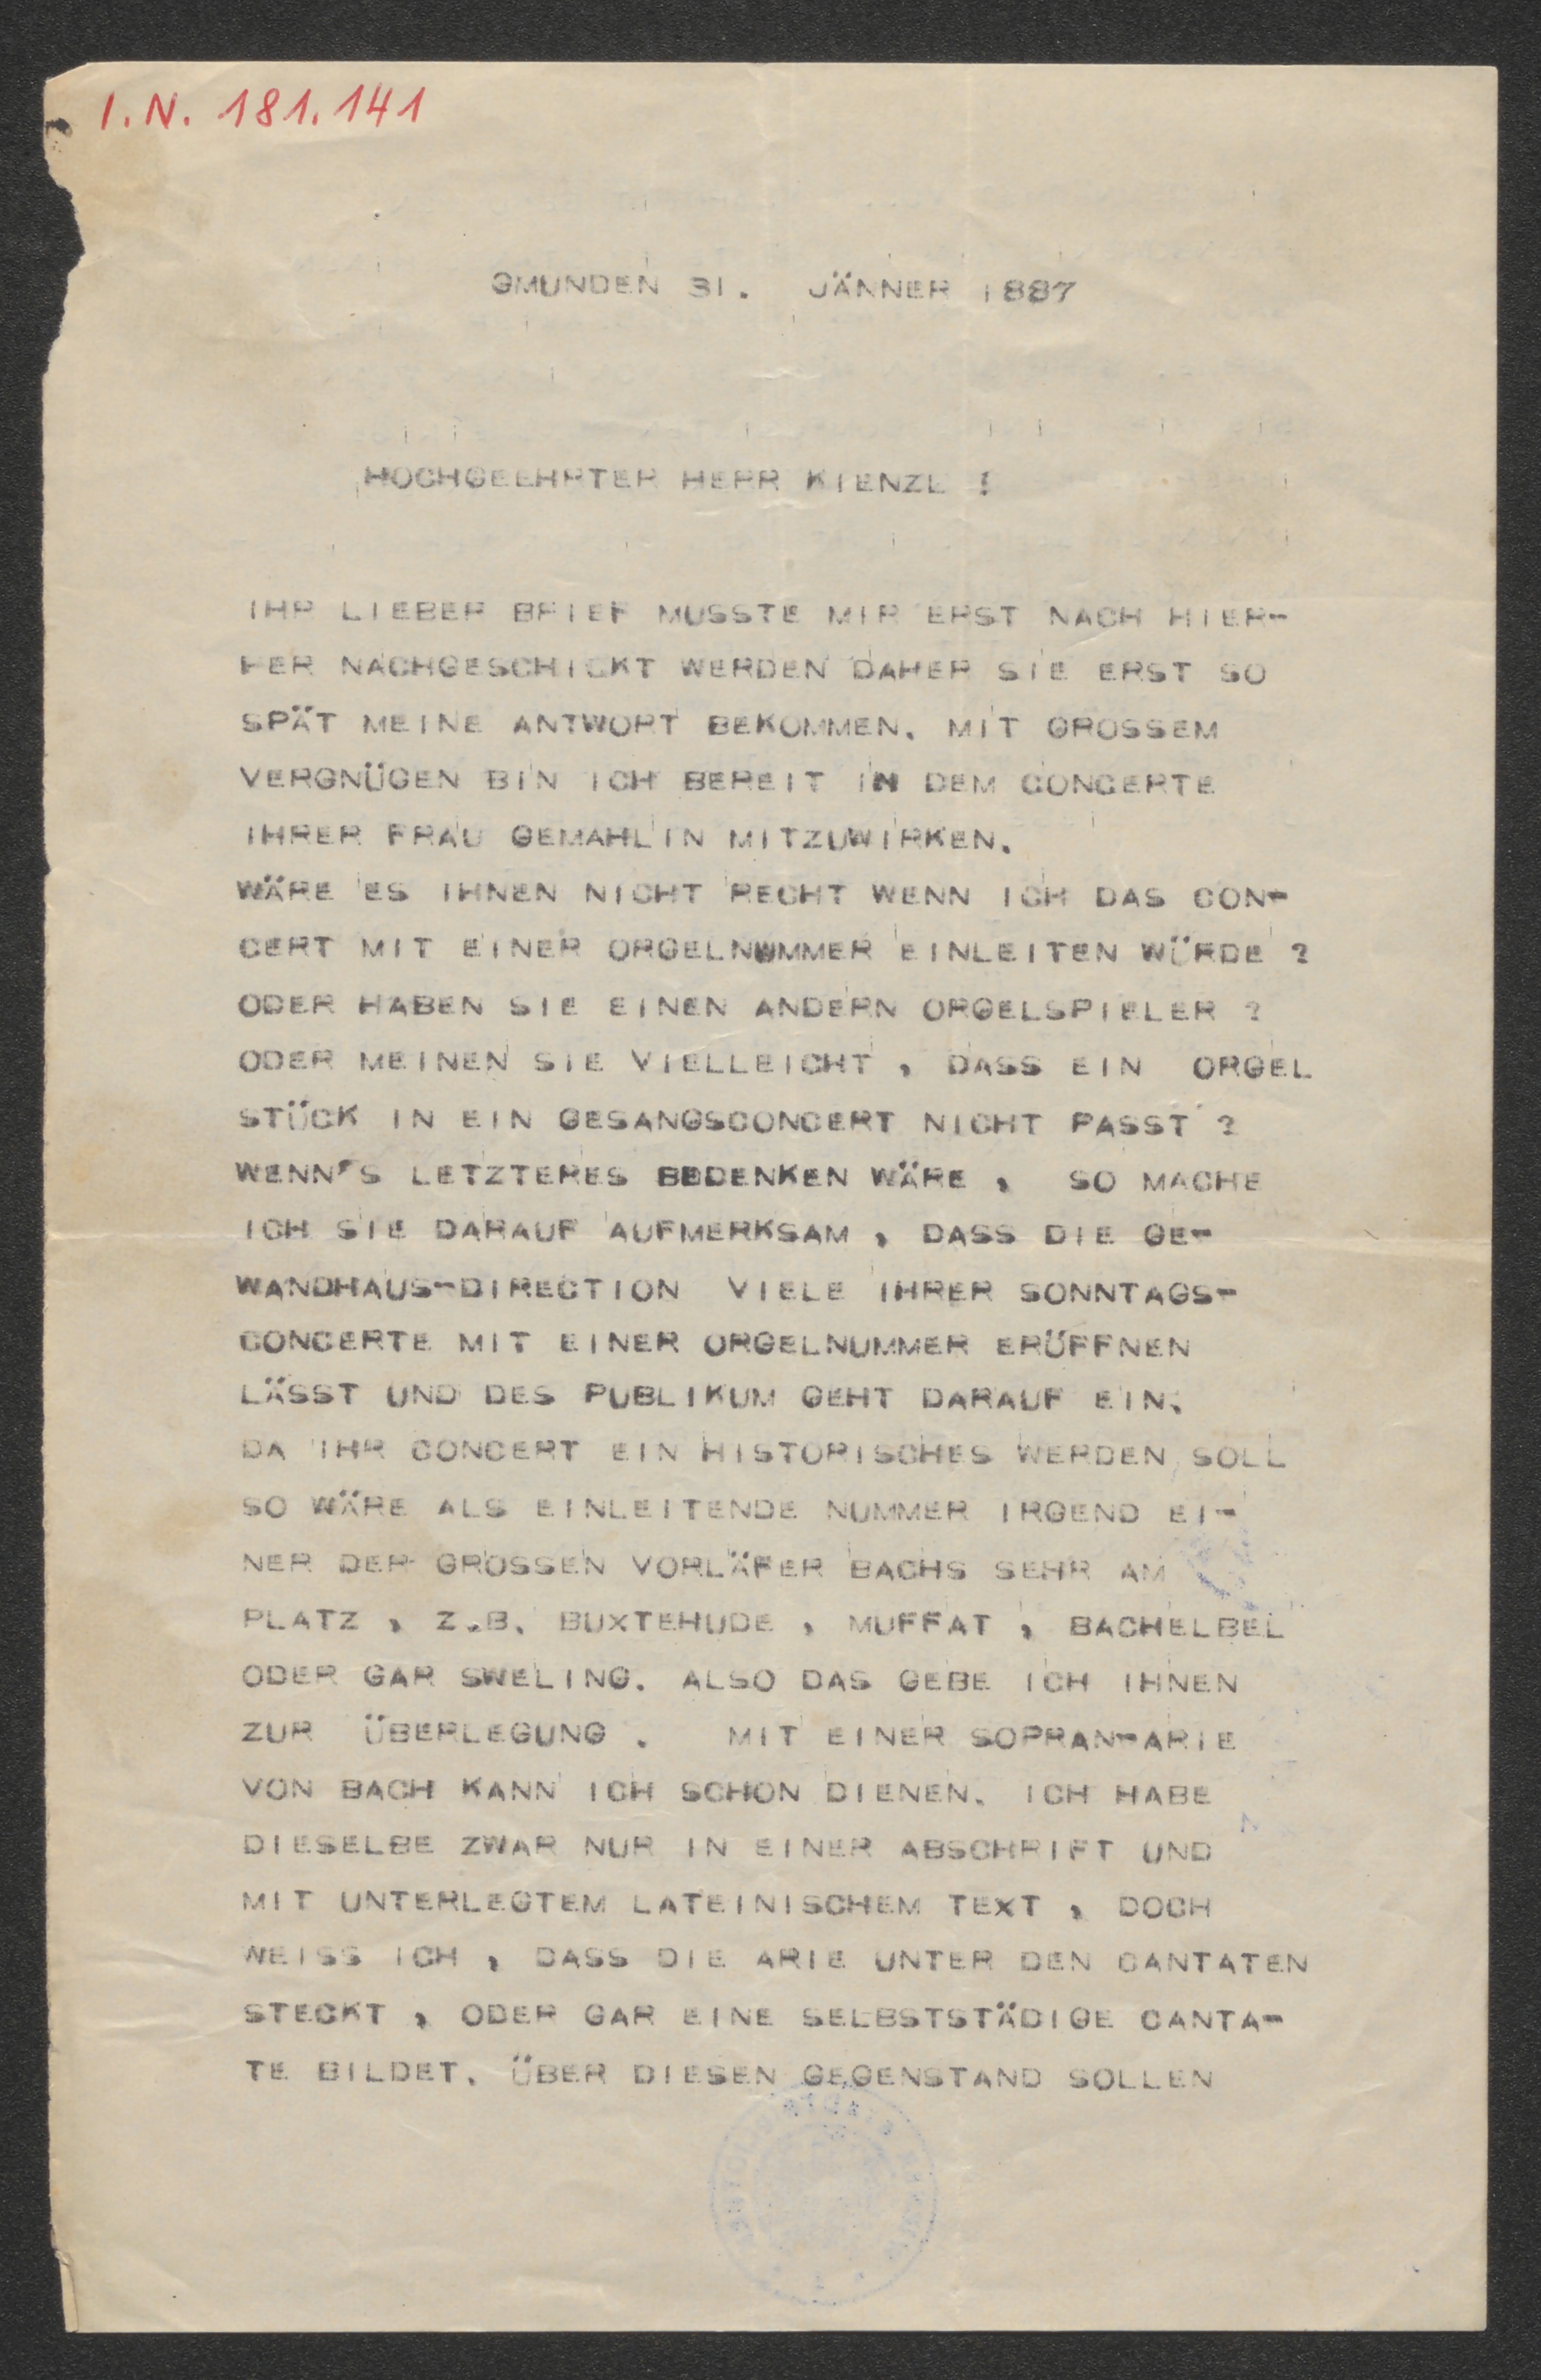 I.N. 181.141
GMUNDEN 31. JÄNNER 1887
HOCHGEEHRTER HERR KIENZL !
IHR LIEBER BRIEF MUSSTE MIR ERST NACH HIER-
HER NACHGESCHICKT WERDEN DAHER SIE ERST SO
SPÄT MEINE ANTWORT BEKOMMEN. MIT GROSSEM
VERGNÜGEN BIN ICH BEREIT IN DEM CONCERTE
IHRER FRAU GEMAHLIN MITZUWIRKEN.
WÄRE ES IHNEN NICHT RECHT WENN ICH DAS CON-
CERT MIT EINER ORGELNUMMER EINLEITEN WÜRDE ?
ODER HABEN SIE EINEN ANDERN ORGELSPIELER ?
ODER MEINEN SIE VIELLEICHT , DASS EIN ORGEL
STÜCK IN EIN GESANGSCONCERT NICHT PASST ?
WENN'S LETZTERES BEDENKEN WÄRE , SO MACHE
ICH SIE DARAUF AUFMERKSAM , DASS DIE GE-
WANDHAUS-DIRECTION VIELE IHRER SONNTAGS-
CONCERTE MIT EINER ORGELNUMMER ERÜFFNEN
LÄSST UND DES PUBLIKUM GEHT DARAUF EIN.
DA IHR CONCERT EIN HISTORISCHES WERDEN SOLL
SO WÄRE ALS EINLEITENDE NUMMER IRGEND EI-
NER DER GROSSEN VORLÄFER BACHS SEHR AM
PLATZ , Z.B. BUXTEHUDE , MUFFAT , BACHELBEL
ODER GAR SWELING. ALSO DAS GEBE ICH IHNEN
ZUR ÜBERLEGUNG . MIT EINER SOPRAN-ARIE
VON BACH KANN ICH SCHON DIENEN. ICH HABE
DIESELBE ZWAR NUR IN EINER ABSCHRIFT UND
MIT UNTERLEGTEM LATEINISCHEM TEXT , DOCH
WEISS ICH , DASS DIE ARIE UNTER DEN CANTATEN
STECKT , ODER GAR EINE SELBSTSTÄDIGE CANTA-
TE BILDET. ÜBER DIESEN GEGENSTAND SOLLEN